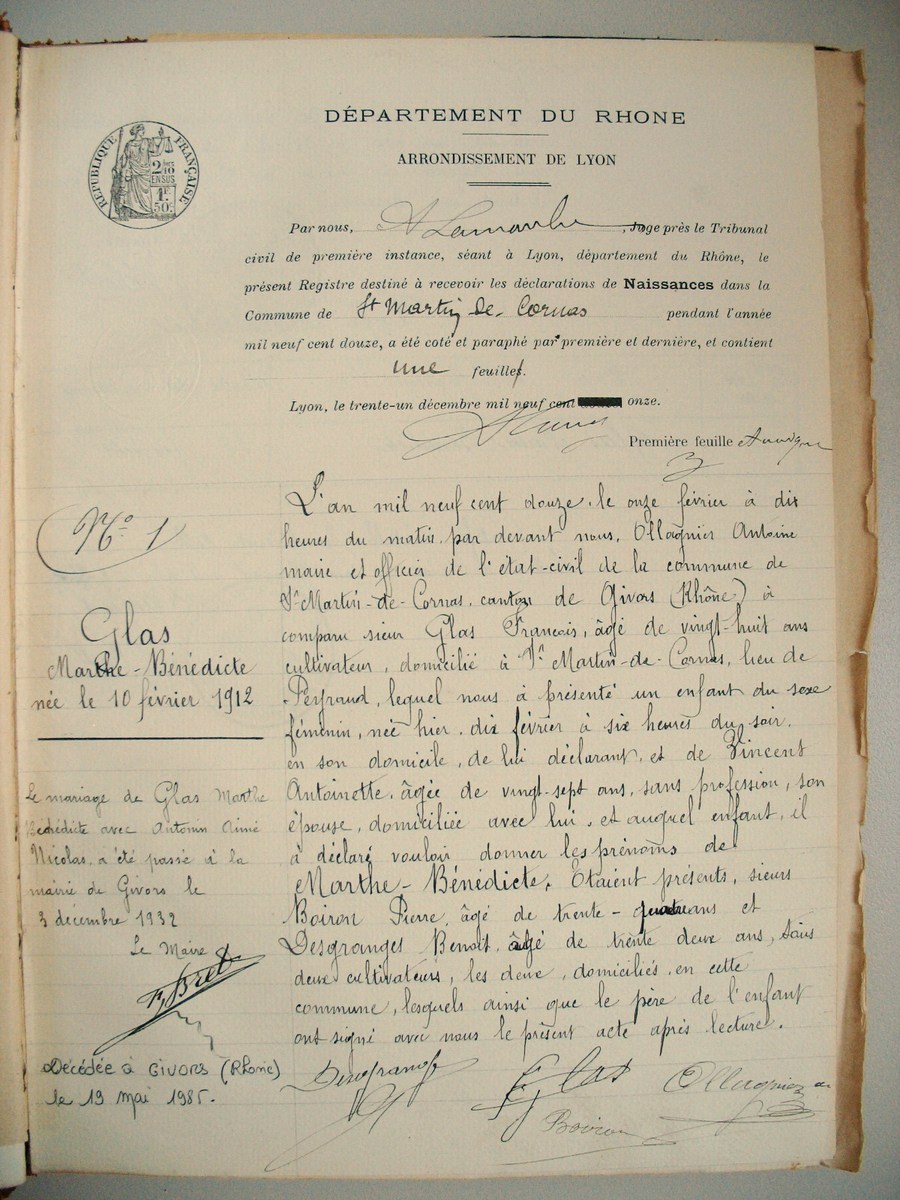 DÉPARTEMENT DU RHONE
ARRONDISSEMENT DE LYON
RÉPUBLIQUE FRANÇAISE
2/10
EN SUS
1F
50c
Par nous, Juge près le Tribunal
civil de première instance, séant à Lyon, département du Rhône, le
présent Registre destiné à recevoir les déclarations de Naissances dans la
Commune de St Martin-de-Cornas pendant l'année
mil neuf cent douze, a été coté et paraphé par première et dernière, et contient
une feuille.
Lyon, le trente-un décembre mil neuf cent onze.
Première feuille
No 1
Glas
Marthe-Bénédicte
née le 10 février 1912
Le mariage de Glas Marthe
Bénédicte avec Antonin Aimé
Nicolas, a été passé à la
mairie de Givors le
3 décembre 1932
Le Maire
Décédée à GIVORS (Rhône)
le 19 mai 1985.
L'an mil neuf cent douze, le onze février à dix
heures du matin, par devant nous, Ollagnier Antoine
maire et officier de l'état-civil de la commune de
St Martin-de-Cornas, canton de Givors (Rhône) à
comparu sieur Glas François, âgé de vingt-huit ans
cultivateur, domicilié à St Martin-de-Cornas, lieu de
Peyraud, lequel nous à présenté un enfant du sexe
féminin, née hier, dix février à six heures du soir,
en son domicile, de lui déclarant, et de Vincent
Antoinette, âgée de vingt-sept ans, sans profession, son
épouse, domiciliée avec lui, et auquel enfant, il
à déclaré vouloir donner les prénoms de
Marthe-Bénédicte. Etaient présents, sieurs
Boiron Pierre, âgé de trente-quatre ans et
Desgranges Benoit, âgé de trente deux ans, tous
deux cultivateurs, les deux, domiciliés, en cette
commune, lesquels ainsi que le père de l'enfant
ont signé avec nous le présent acte après lecture.
Desgranges Glas Ollagnier
Boiron